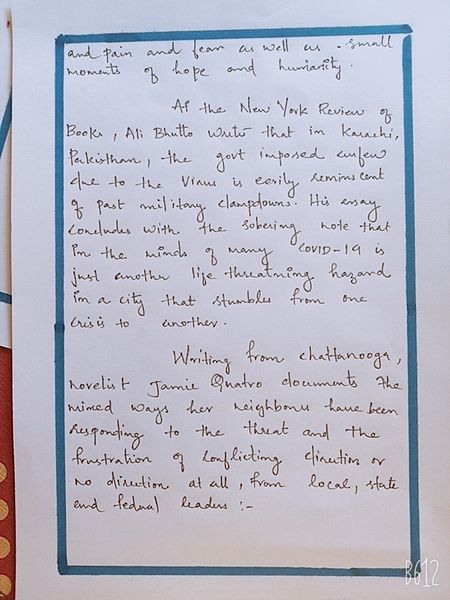 and pain and fear as well as small
moments of hope and humiarity.
At the New York Review of
Books, Ali Bhutto write that in Karachi,
Pakisthan, the govt imposed curfew
due to the Virus is eerily reminscent
of past military clampdowns. His essay
concludes with the sobering note that
in the minds of many COVID-19 is
just another life threatning hazard
in a city that stumbles from one
crisis to another.
Writing from chattanooga,
novelist Jamie Quatro documents the
mixed ways her neighbours have been
responding to the threat and the
frustration of conflicting direction or
no direction at all, from local, state
and federal leaders :-
B612